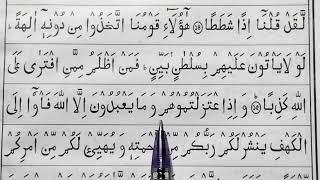 لَّقَدْ قُلْنَاۤ اِذًا شَطَطًا ﴿۱۴﴾ هٰۤؤُلَآءِ قَوْمُنَا اتَّخَذُوْا مِنْ دُوْنِهٖۤ اٰلِهَةً ؕ
لَوْ لَا يَاْتُوْنَ عَلَيْهِمْ بِسُلْطٰنٍۭ بَيِّنٍ ؕ فَمَنْ اَظْلَمُ مِمَّنِ افْتَرٰى عَلَى
اللّٰهِ كَذِبًا ﴿۱۵﴾ وَ اِذِ اعْتَزَلْتُمُوْهُمْ وَ مَا يَعْبُدُوْنَ اِلَّا اللّٰهَ فَاْوٗۤا اِلَى
الْكَهْفِ يَنْشُرْ لَكُمْ رَبُّكُمْ مِّنْ رَّحْمَتِهٖ وَ يُهَيِّئْ لَكُمْ مِّنْ اَمْرِكُمْ